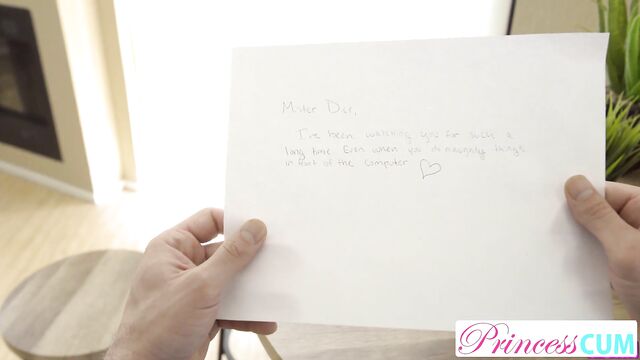 Mister D
I've been watching you for such a
long time Even when you do naughty things
in front of the computer
PrincessCUM